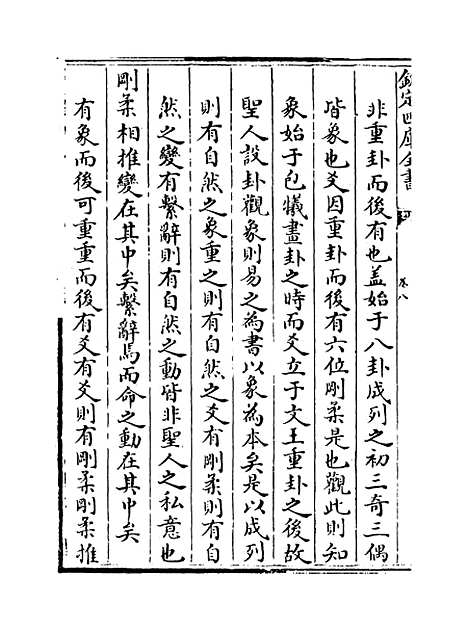 欽定四庫全書
卷八
非重卦而後有也盖始于八卦成列之初三奇三偶
皆象也爻因重卦而後有六位剛柔是也觀此則知
象始于包犧畫卦之時而爻立于文王重卦之後故
聖人設卦觀象則易之為書以象為本矣是以成列
則有自然之象重之則有自然之爻有剛柔則有自
然之變有繫辭則有自然之動皆非聖人之私意也
剛柔相推變在其中矣繫辭焉而命之動在其中矣
有象而後可重重而後有爻有爻則有剛柔剛柔推